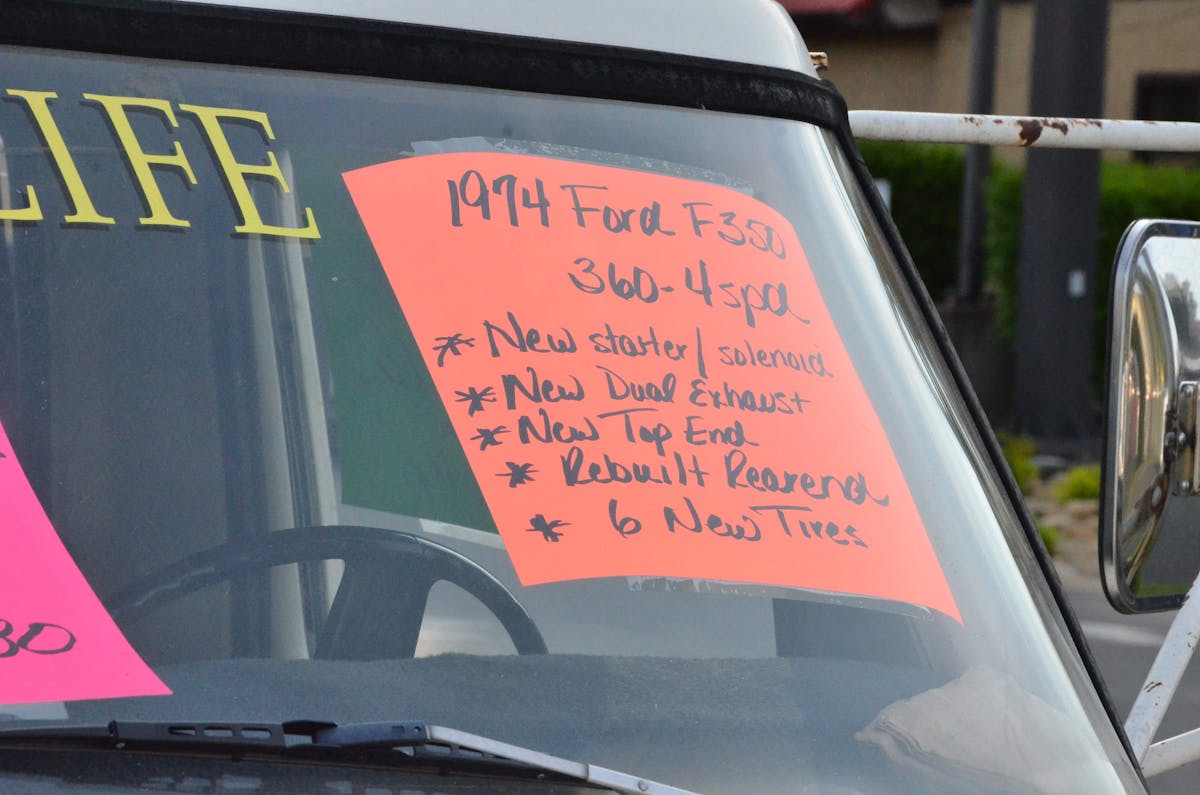 LIFE
1974 Ford F350
360-4spd
* New starter/solenoid
* New Dual Exhaust
* New Top End
* Rebuilt Rearend
* 6 New Tires
30